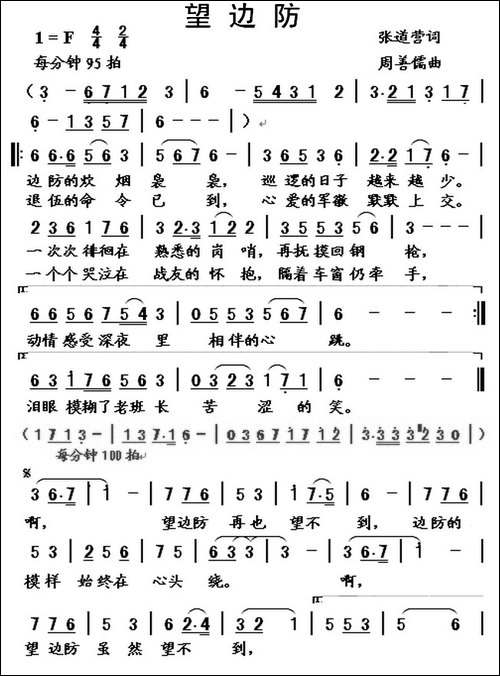 望边防
1=F 4/4 2/4 张道营词
每分钟95拍 周善儒曲
(3 - 6 7 1 2 | 3 | 6 - 5 4 3 1 2 | 3·2 1 3 1 7 |
6 - 1 3 5 7 | 6 - - - | )
6 6·6 5 6 3 | 5 6 7 6 - | 3 6 5 3 6 | 2·2 1 7 6 - |
边防的炊烟袅袅, 巡逻的日子越来越少。
退伍的命令已到, 心爱的军徽默默上交。
2 3 6 1 7 6 | 3 2·3 1 2 | 3 5 3 5 3 6 | 3 - - - |
一次次徘徊在熟悉的岗哨,再抚摸回钢枪,
一个个哭泣在战友的怀抱,隔着车窗仍牵手,
1.
6 6 5 6 7 5 4 3 | 0 5 5 3 5 6 7 | 6 - - - :||
动情感受深夜里相伴的心跳。
2.
6 3 1 7 6 5 6 3 | 0 3 2 3 1 7 1 | 6 - - - ||
泪眼模糊了老班长苦涩的笑。
(1 7 1 3 - | 1 3 7·1 6 - | 0 3 6 7 1 7 1 2 | 3·3 3 3 2 3 0 )
每分钟100拍
3 6·7 | 1 - | 7 7 6 | 5 3 | 1 7·5 | 6 - | 7 7 6 |
啊, 望边防再也望不到, 边防的
5 3 | 2 5 6 | 7 5 | 6 3 3 | 3 - | 3 6·7 | 1 - |
模样始终在心头绕。 啊,
1.
7 7 6 | 5 3 | 5 6 | 2·4 | 3 - | 3 - | 5 5 3 | 5 6 |
望边防虽然望不到,